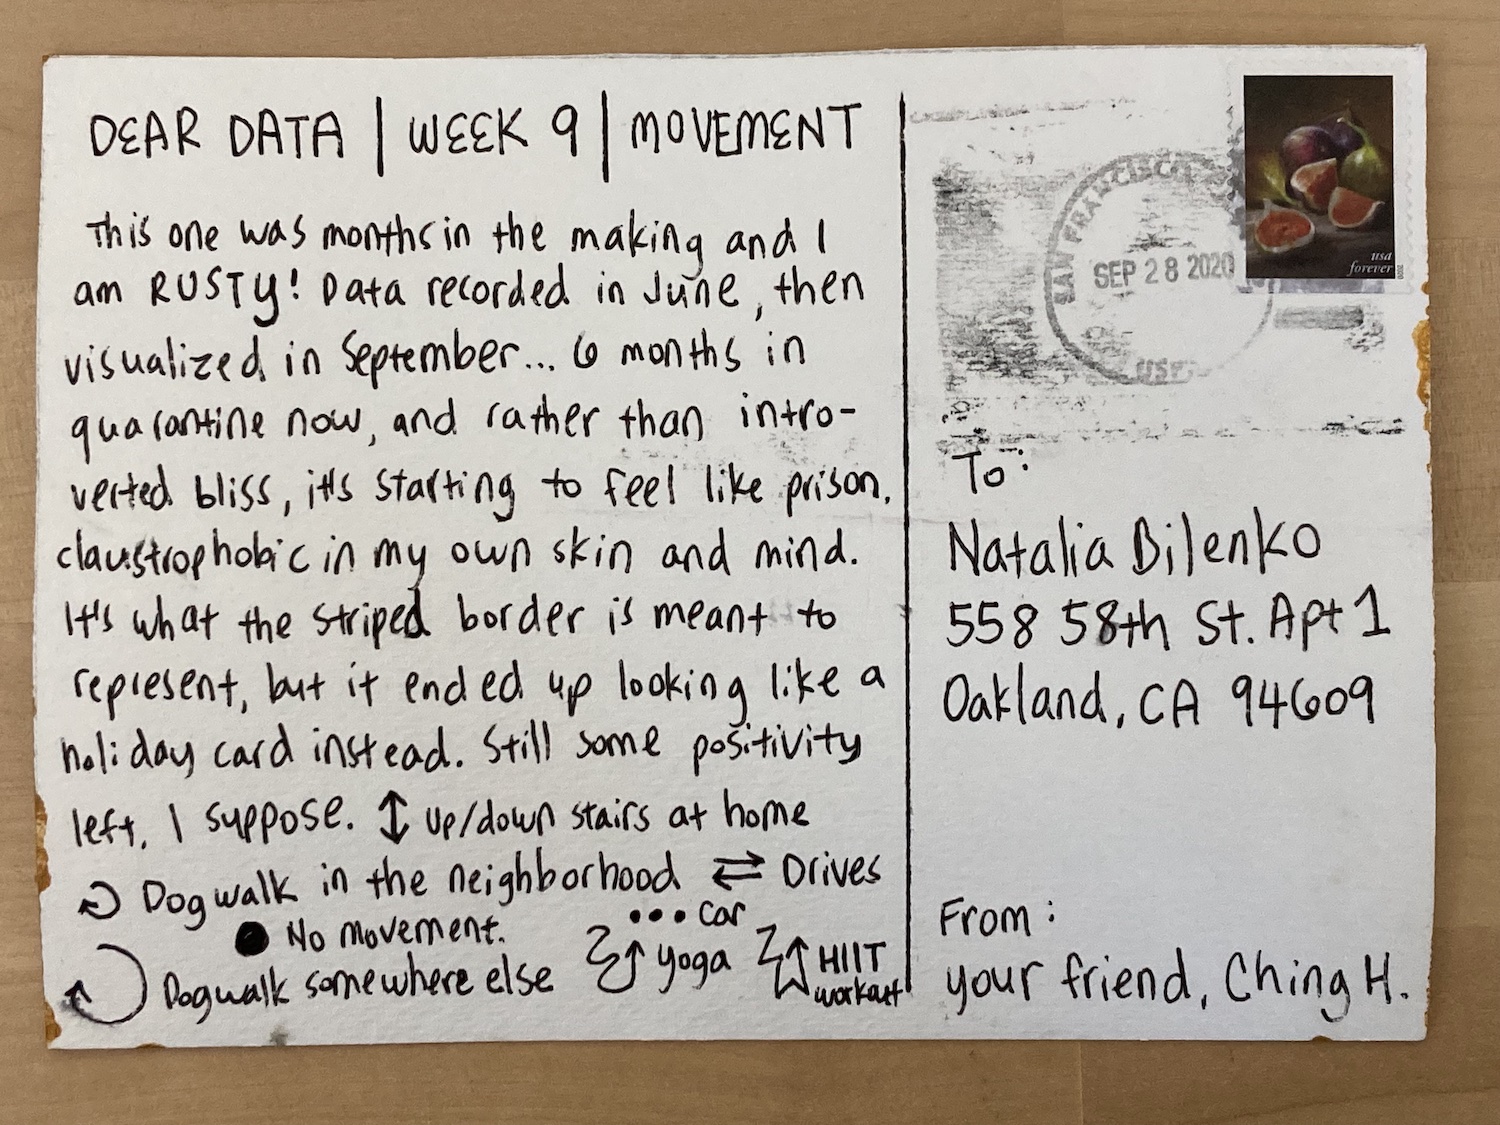 DEAR DATA | WEEK 9 | MOVEMENT
This one was months in the making and I
am RUSTY! Data recorded in June, then
visualized in September... 6 months in
quarantine now, and rather than intro-
verted bliss, it's starting to feel like prison,
claustrophobic in my own skin and mind.
It's what the striped border is meant to
represent, but it ended up looking like a
holiday card instead. Still some positivity
left, I suppose. ↕ up/down stairs at home
↻ Dogwalk in the neighborhood ⇄ Drives
● No movement. ••• car
Dogwalk somewhere else yoga HIIT
workout
SAN FRANCISCO
SEP 28 2020
USPS
usa
forever
2020
To:
Natalia Bilenko
558 58th St. Apt 1
Oakland, CA 94609
From:
your friend, Ching H.